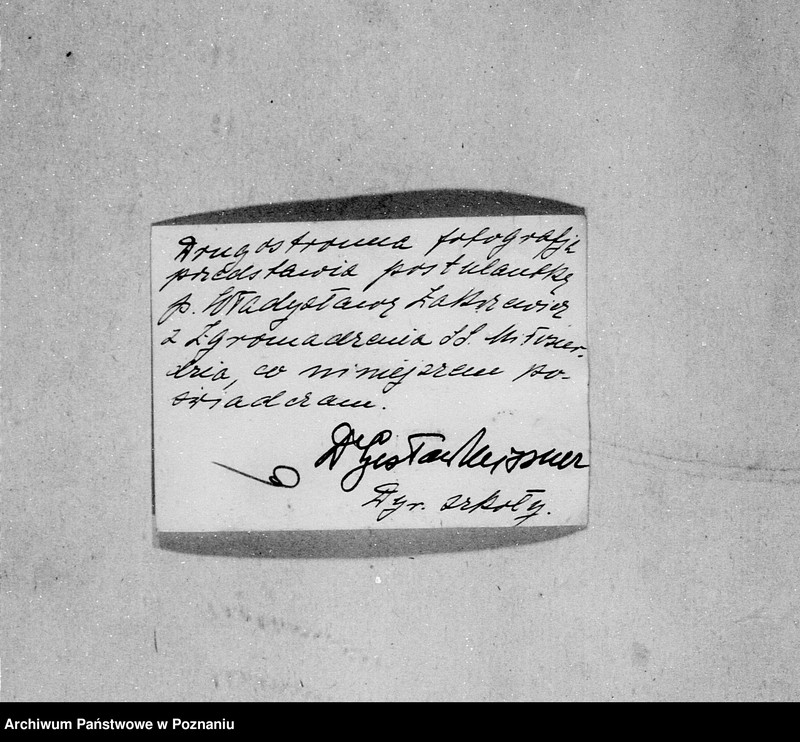 Drugostronna fotografja
przedstawia postulantkę
p. Władysławę Zakrzewicz
z Zgromadzenia SS. Miłosier-
dzia, co niniejszem po-
świadczam.
Dr Gustaw Meissner
Dyr. szkoły.
Archiwum Państwowe w Poznaniu